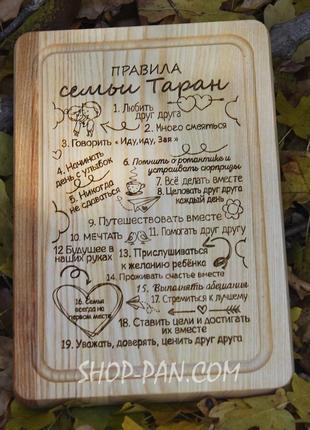 ПРАВИЛА
семьи Таран
1. Любить
друг друга
2. Много смеяться
3. Говорить « Иду,иду, Зая »
4. Начинать
день с улыбок
5. Никогда
не сдаваться
6. Помнить о романтике и
устраивать сюрпризы
7. Всё делать вместе
8. Целовать друг друга
каждый день
9. Путешествовать вместе
10. МЕЧТАТЬ
11. Помогать друг другу
12 Будущее в
наших руках
13. Прислушиваться
к желанию ребёнка
14. Проживать счастье вместе
15. Выполнять обещания
16. Семья
всегда на
первом месте
17. Стремиться к лучшему
18. Ставить цели и достигать
их вместе
19. Уважать, доверять, ценить друг друга
SHOP-PAN.COM